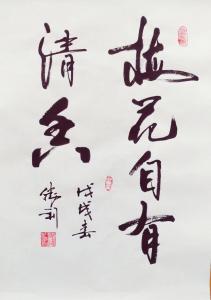 梅花自有
清香
戊戌春